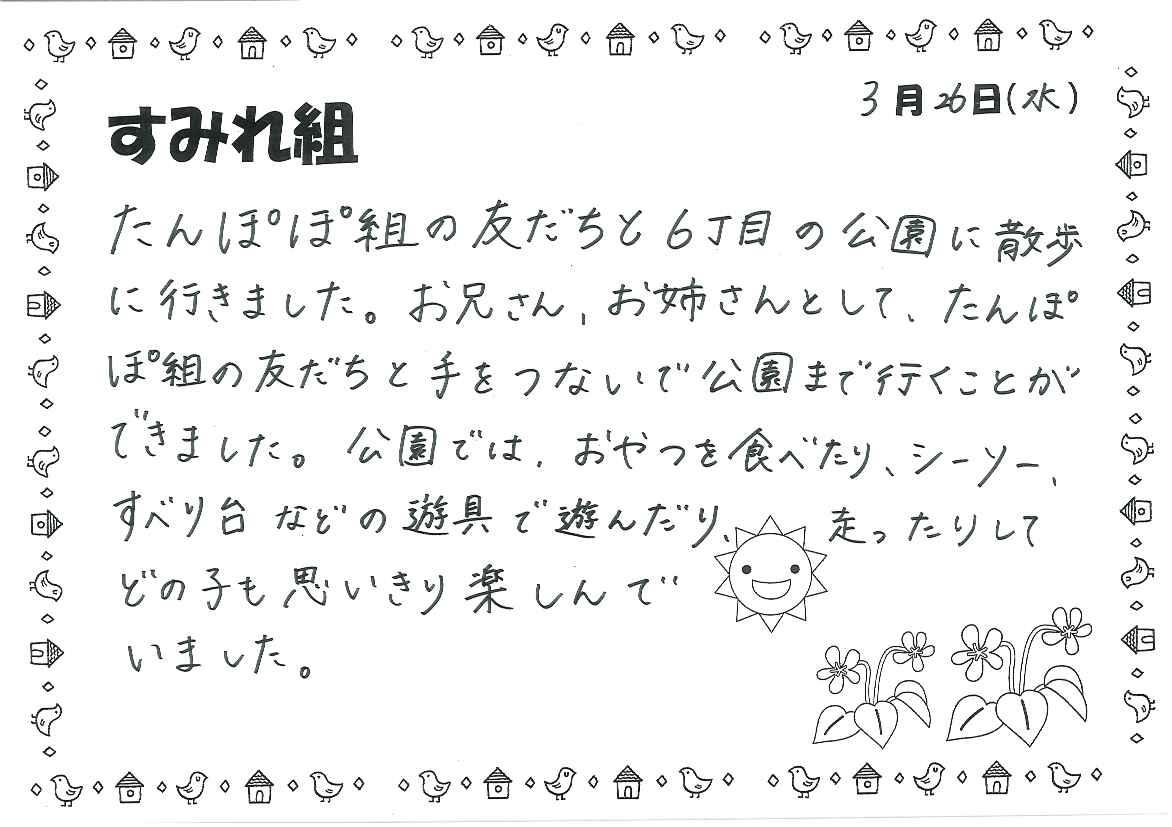 3月26日(水)
すみれ組
たんぽぽ組の友だちと6丁目の公園に散歩
に行きました。お兄さん、お姉さんとして、たんぽ
ぽ組の友だちと手をつないで公園まで行くことが
できました。公園では、おやつを食べたり、シーソー、
すべり台などの遊具で遊んだり、走ったりして
どの子も思いきり楽しんで
いました。